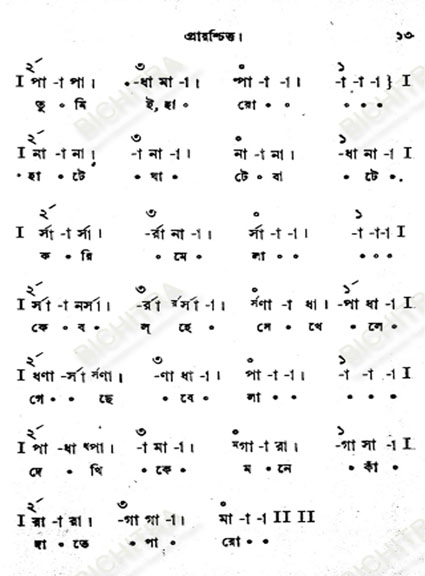 প্রায়শ্চিত্ত। ১৩
২´ ৩ ০ ১
I পা -া পা। -ধা মা -া। পা -া -া। -া -া -া } I
তু ০ মি ই, হা ০ রো ০ ০ ০ ০ ০
২´ ৩ ০ ১
I না -া না। -া না -া। না -া না। -ধা না -া I
০ হা ০ টে ০ ঘা ০ টে ০ বা ০ টে ০
২´ ৩ ০ ১
I র্সা -া র্সা। -র্রা না -া। র্সা -া -া। -া -া -া I
ক ০ রি ০ মে ০ লা ০ ০ ০ ০ ০
২´ ৩ ০ ১´
I র্সা -া নর্সা। -র্রা র্রর্সা -া। র্সণা -া ধা। -পা ধা -া I
কে ০ ব ০ ল্ হে ০ সে ০ খে ০ লে ০
২´ ৩ ০ ১
I ধণা -র্সা র্সণা। -ণা ধা -া। পা -া -া। -া -া -া I
গে ০ ০ ছে ০ বে ০ লা ০ ০ ০ ০ ০
২´ ৩ ০ ১
I পা -ধা ধপা। -া মা -া। মগা -া রা। -গা সা -া I
দে ০ খি ০ কে ০ ম ০ নে ০ কাঁ ০
২´ ৩ ০
I রা -া রা। -গা গা -া। মা -া -া II II
হা ০ তে ০ পা ০ রো ০ ০
BICHITRA